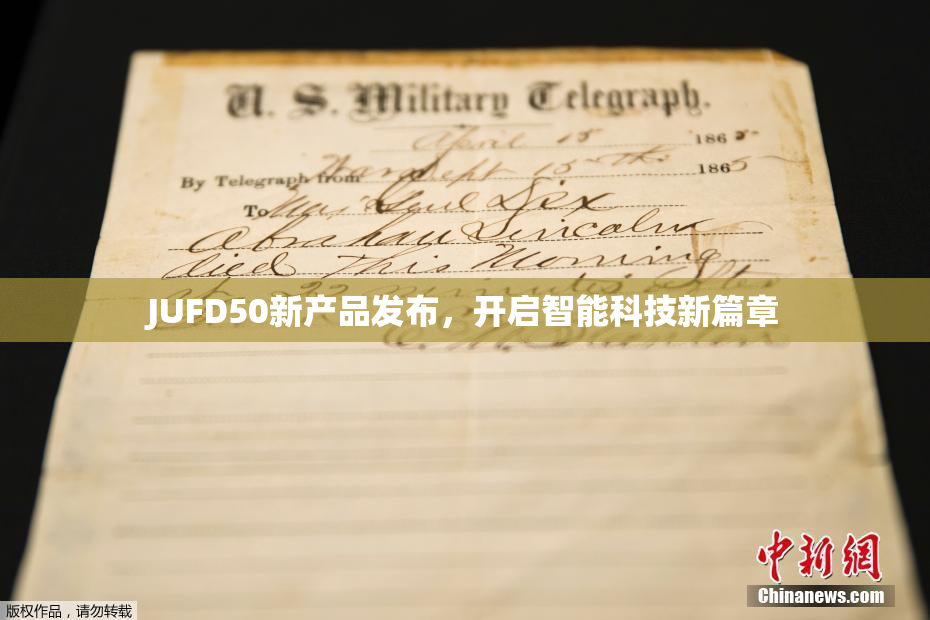 U. S. Military Telegraph.
April 15 1865
By Telegraph from War Dept 15th 1865
To Maj Genl Dix
Abraham Lincoln
died This Morning
at 22 minutes after
JUFD50新产品发布，开启智能科技新篇章
E. M. Stanton
中新网
Chinanews.com
版权作品，请勿转载